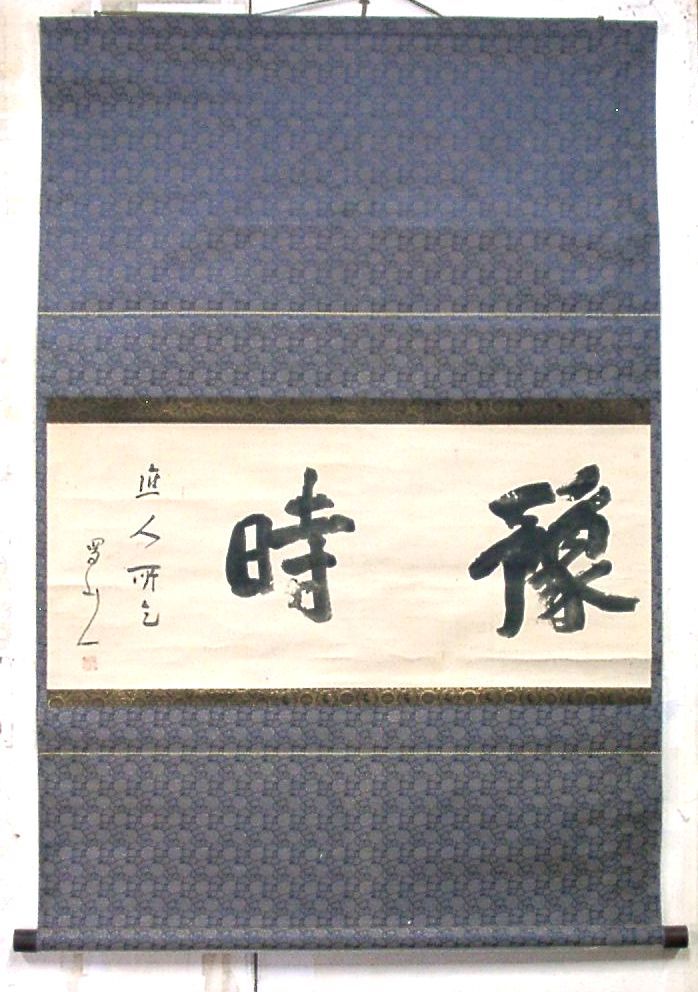 豫時
應人所乞